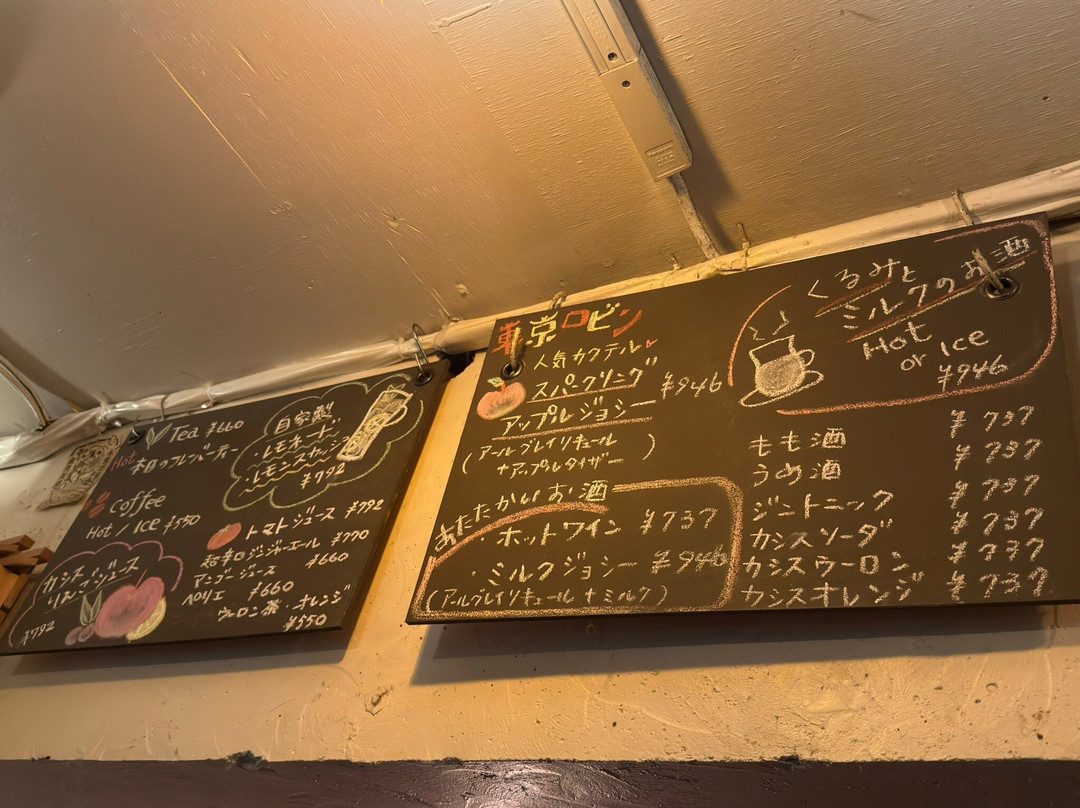 Tea ¥660
Hot
本日のフレーバーティー
自家製
・レモネード
・レモンスカッシュ
¥792
Coffee
Hot / Ice ¥550
カシス
りんごジュース
¥792
トマトジュース ¥792
岩辛口ジンジャーエール ¥770
マンゴージュース ¥660
ペリエ ¥660
ウーロン茶・オレンジ
¥550
東京ロビン
人気カクテル
スパークリング
アップルジョシー
¥946
(アールグレイリキュール
+アップルタイザー)
あたたかいお酒
ホットワイン ¥737
・ミルクジョシー ¥946
(アールグレイリキュール+ミルク)
くるみと
ミルクのお酒
Hot
or Ice
¥946
もも酒 ¥737
うめ酒 ¥737
ジントニック ¥737
カシスソーダ ¥737
カシスウーロン ¥737
カシスオレンジ ¥737